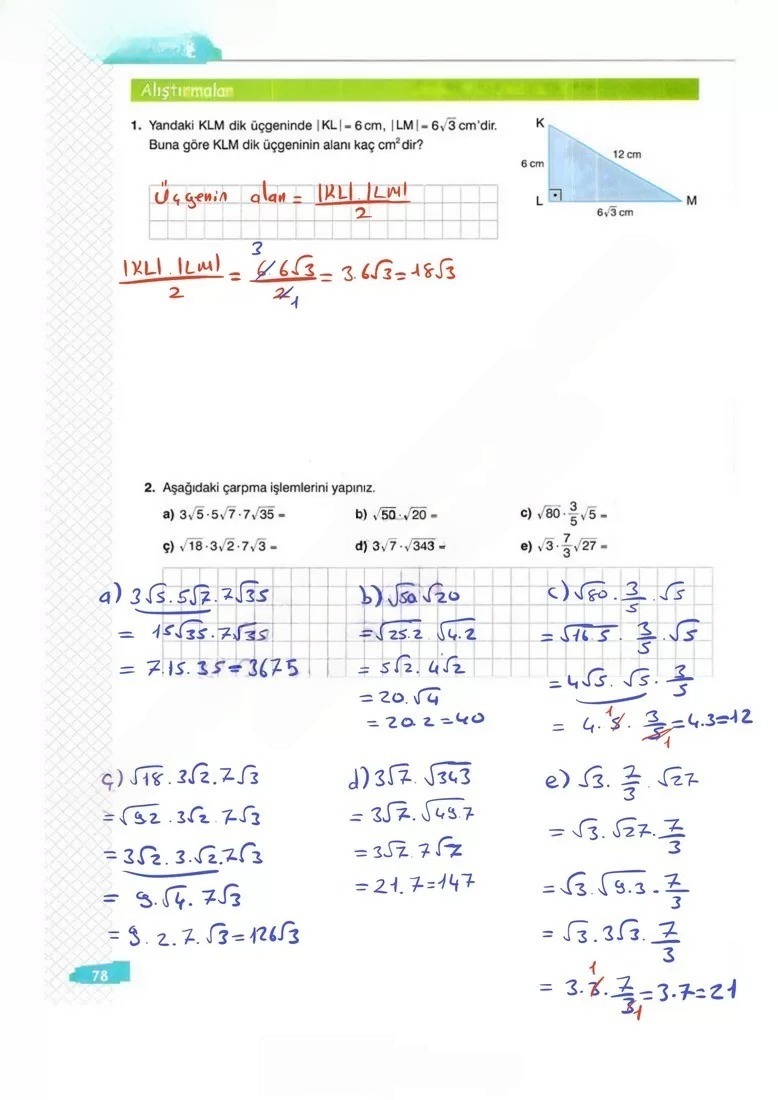 Alıştırmalar
1. Yandaki KLM dik üçgeninde |KL| = 6 cm, |LM| = 6√3 cm'dir.
Buna göre KLM dik üçgeninin alanı kaç cm² dir?
K
12 cm
6 cm
L
M
6√3 cm
Üçgenin alan = |KL| . |LM| / 2
|KL| . |LM| / 2 = 6.6√3 / 2 = 3.6√3 = 18√3
3
1
2. Aşağıdaki çarpma işlemlerini yapınız.
a) 3√5 · 5√7 · 7√35 = b) √50 · √20 = c) √80 · 3/5 √5 =
ç) √18 · 3√2 · 7√3 = d) 3√7 · √343 = e) √3 · 7/3 √27 =
a) 3√5 . 5√7 . 7√35
= 15√35 . 7√35
= 7.15.35 = 3675
b) √50 √20
= √25.2 √4.2
= 5√2 . 4√2
= 20.√4
= 20.2 = 40
c) √80 . 3/5 . √5
= √16 5 . 3/5 . √5
= 4√5 . √5 . 3/5
= 4. 5 . 3/5 = 4.3 = 12
1
1
ç) √18 . 3√2 . 7√3
= √92 . 3√2 7√3
= 3√2 . 3.√2.7√3
= 9.√4. 7√3
= 9. 2. 7. √3 = 126√3
d) 3√7 . √343
= 3√7 . √49.7
= 3√7 . 7√7
= 21.7 = 147
e) √3 . 7/3 . √27
= √3 . √27 . 7/3
= √3 . √9.3 . 7/3
= √3 . 3√3 . 7/3
= 3.3. 7/3 = 3.7 = 21
1
1
78